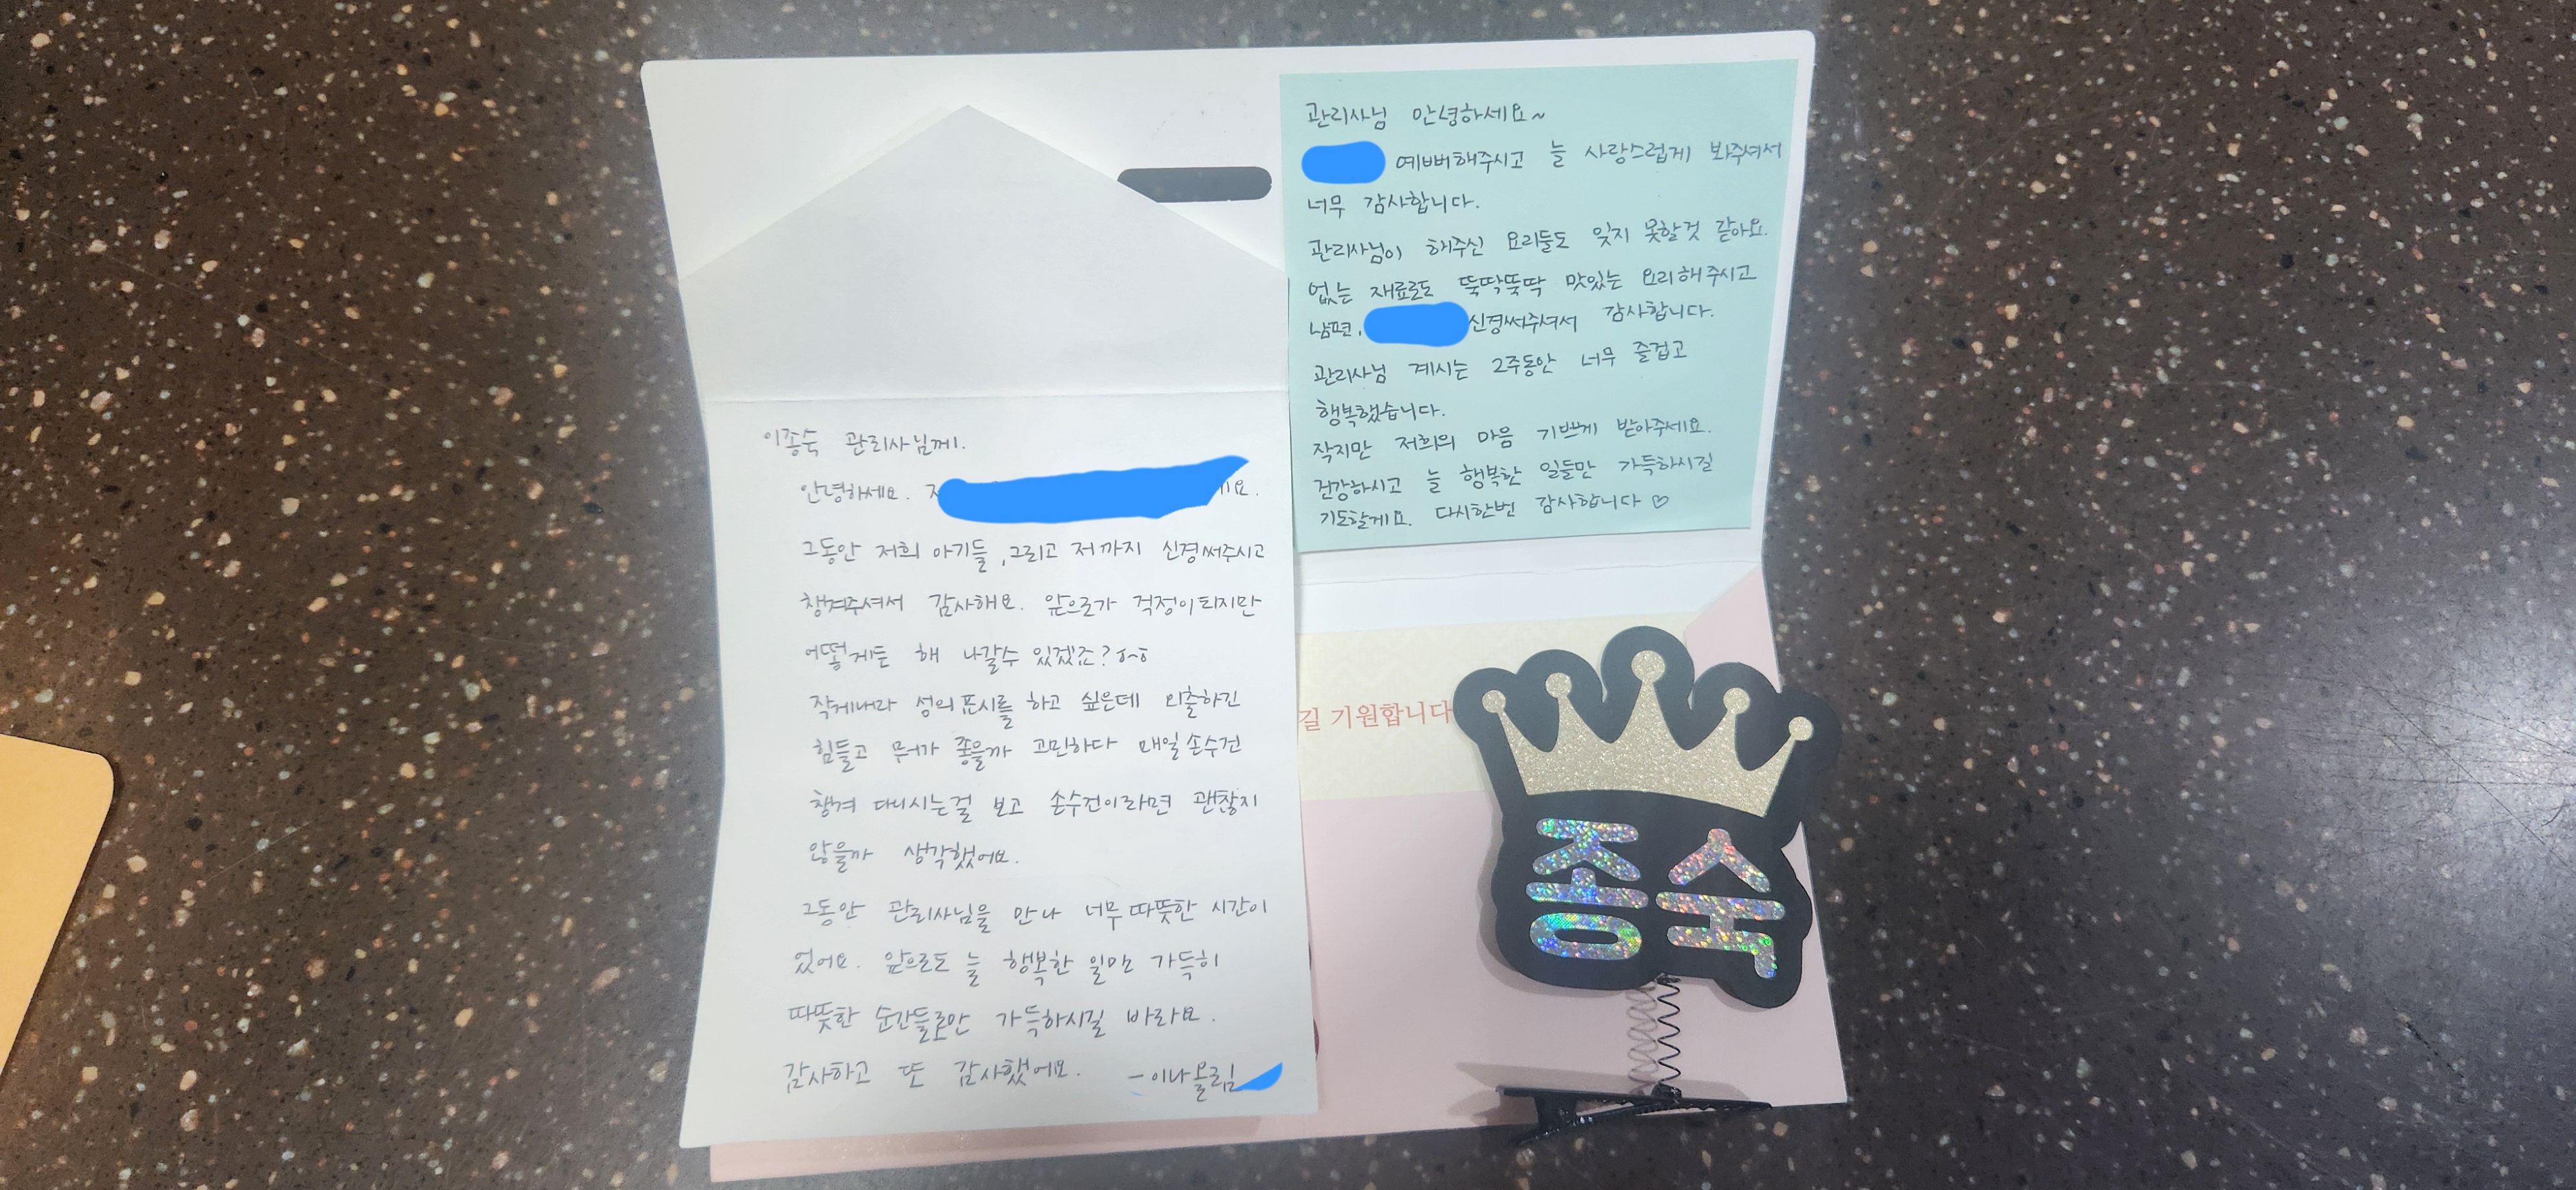 이종숙 관리사님께.
안녕하세요.
그동안 저희 아기들, 그리고 저까지 신경써주시고
챙겨주셔서 감사해요. 앞으로가 걱정이되지만
어떻게든 해 나갈수 있겠죠? ㅎ~ㅎ
작게나라 성의표시를 하고 싶은데 외출하긴
힘들고 뭐가 좋을까 고민하다 매일 손수건
챙겨 다니시는걸 보고 손수건이라면 괜찮지
않을까 생각했어요.
그동안 관리사님을 만나 너무 따뜻한 시간이
었어요. 앞으로도 늘 행복한 일만 가득히
따뜻한 순간들로만 가득하시길 바라요.
감사하고 또 감사했어요. - 이나 올림
관리사님 안녕하세요~
예뻐해주시고 늘 사랑스럽게 봐주셔서
너무 감사합니다.
관리사님이 해주신 요리들도 잊지 못할것 같아요.
없는 재료로도 뚝딱뚝딱 맛있는 요리해주시고
남편, 신경써주셔서 감사합니다.
관리사님 계시는 2주동안 너무 즐겁고
행복했습니다.
작지만 저희의 마음 기쁘게 받아주세요.
건강하시고 늘 행복한 일들만 가득하시길
기도할게요. 다시한번 감사합니다 ♡
길 기원합니다
종숙